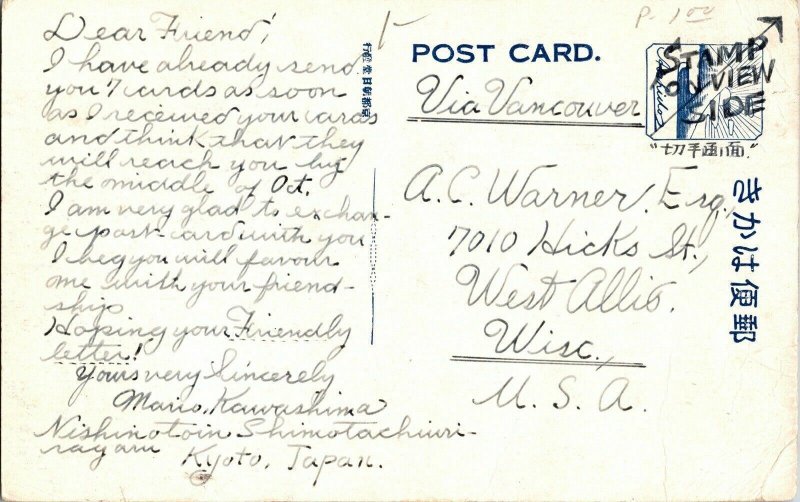 Dear Friend!
I have already send
you 7 cards as soon
as I received your cards
and think that they
will reach you by
the middle of Oct.
I am very glad to exchan-
ge post-card with you
I beg you will favour
me with your friend-
ship
Hoping your Friendly
letter!
Yours very Sincerely
Mario, Kawashima
Nishinotoin Shimotachiuri-
Kyoto, Japan.
POST CARD.
Via Vancouver
P-1.00
STAMP
ON VIEW
SIDE
"切手画面"
A.C. Warner. Esq,
7010 Hicks St.,
West Allis.
Wisc.,
U. S. A.
きかは便郵